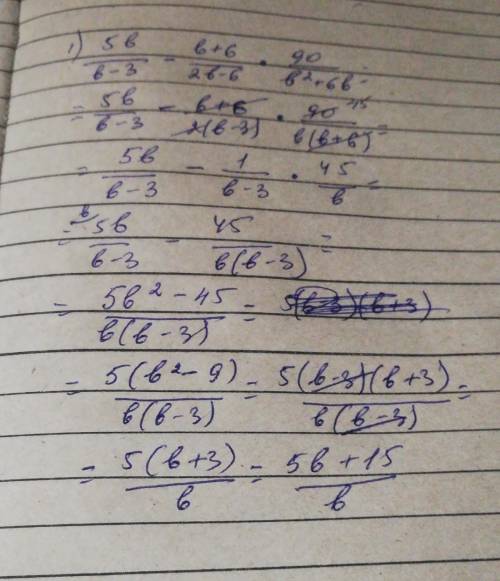 1) 5b/(b-3) - (b+6)/(2b-6) · 90/(b²+6b) =
= 5b/(b-3) - (b+6)/(2(b-3)) · 90 45/(b(b+6)) =
= 5b/(b-3) - 1/(b-3) · 45/b =
= b 5b/(b-3) - 45/(b(b-3)) =
= (5b² - 45)/(b(b-3)) = 5(b-3)(b+3)
= 5(b² - 9)/(b(b-3)) = 5(b-3)(b+3)/(b(b-3)) =
= 5(b+3)/b = (5b+15)/b